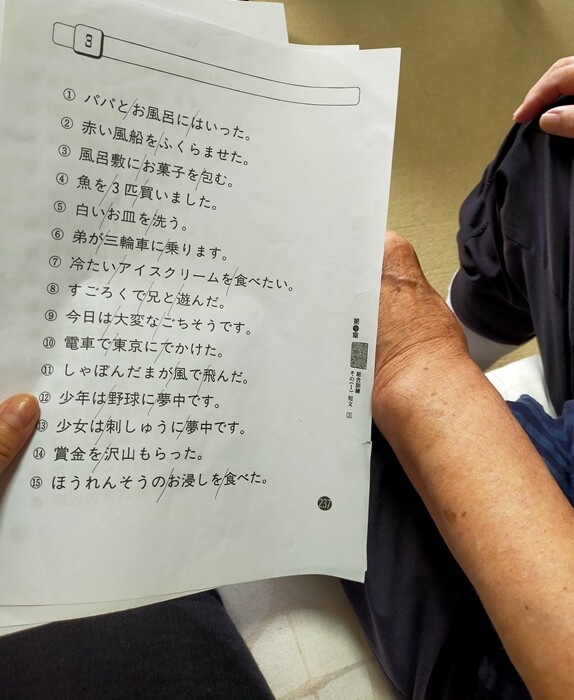 3
① パパとお風呂にはいった。
② 赤い風船をふくらませた。
③ 風呂敷にお菓子を包む。
④ 魚を3匹買いました。
⑤ 白いお皿を洗う。
⑥ 弟が三輪車に乗ります。
⑦ 冷たいアイスクリームを食べたい。
⑧ すごろくで兄と遊んだ。
⑨ 今日は大変なごちそうです。
⑩ 電車で東京にでかけた。
⑪ しゃぼんだまが風で飛んだ。
⑫ 少年は野球に夢中です。
⑬ 少女は刺しゅうに夢中です。
⑭ 賞金を沢山もらった。
⑮ ほうれんそうのお浸しを食べた。
総合訓練
その(1) 短文
237